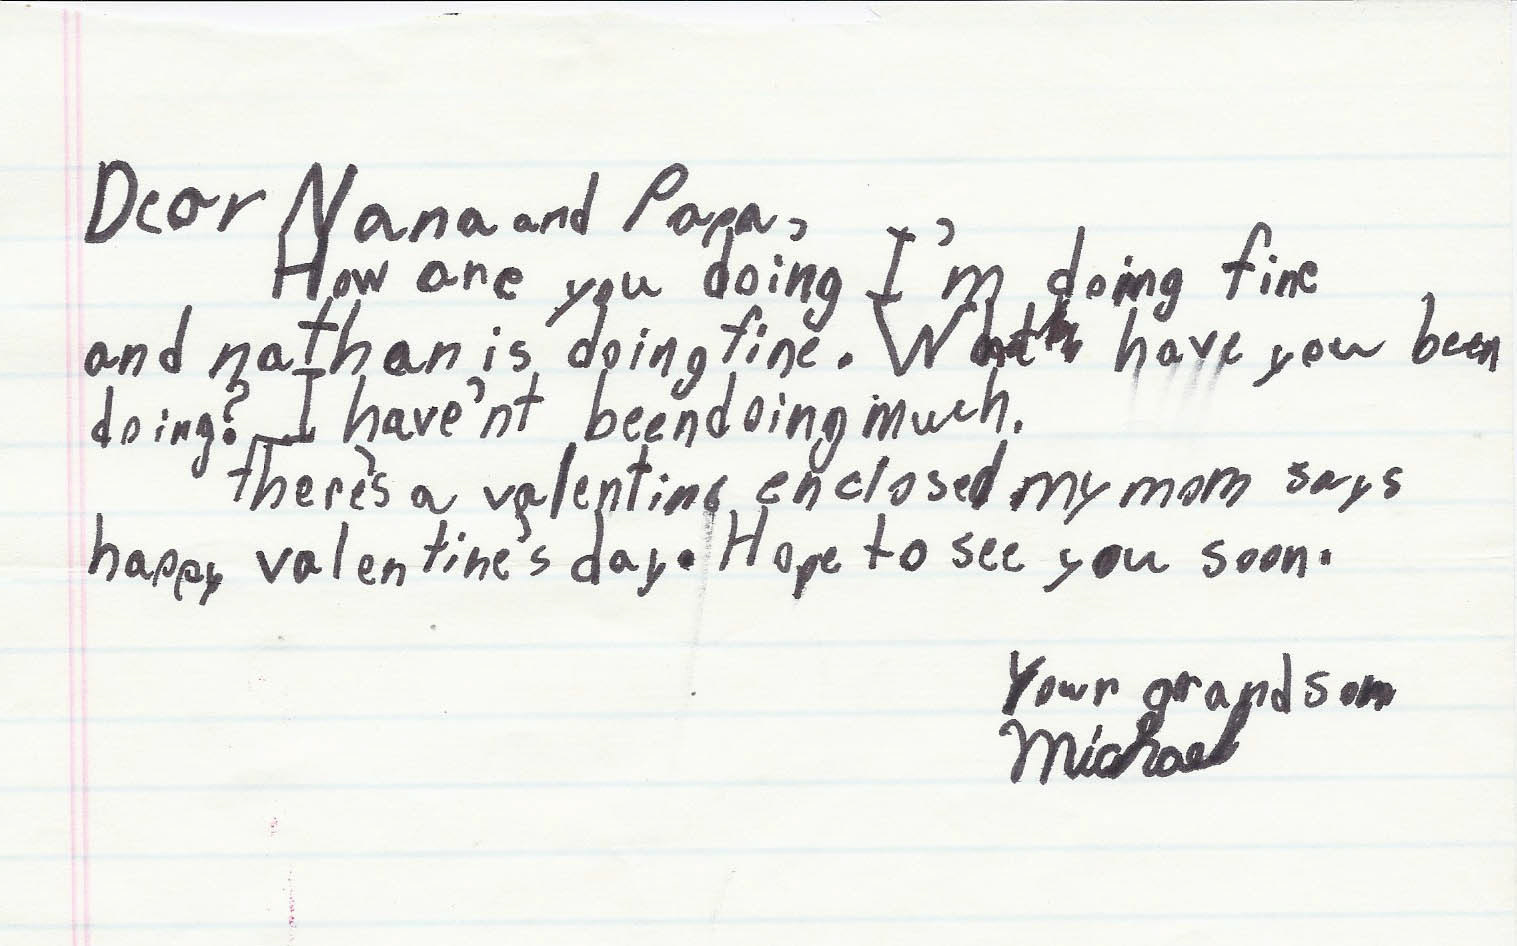 Dear Nana and Papa,
How are you doing I'm doing fine
and nathan is doing fine. What have you been
doing? I have'nt been doing much.
There's a valentine enclosed my mom says
happy valentine's day. Hope to see you soon.
Your grandson
Michael